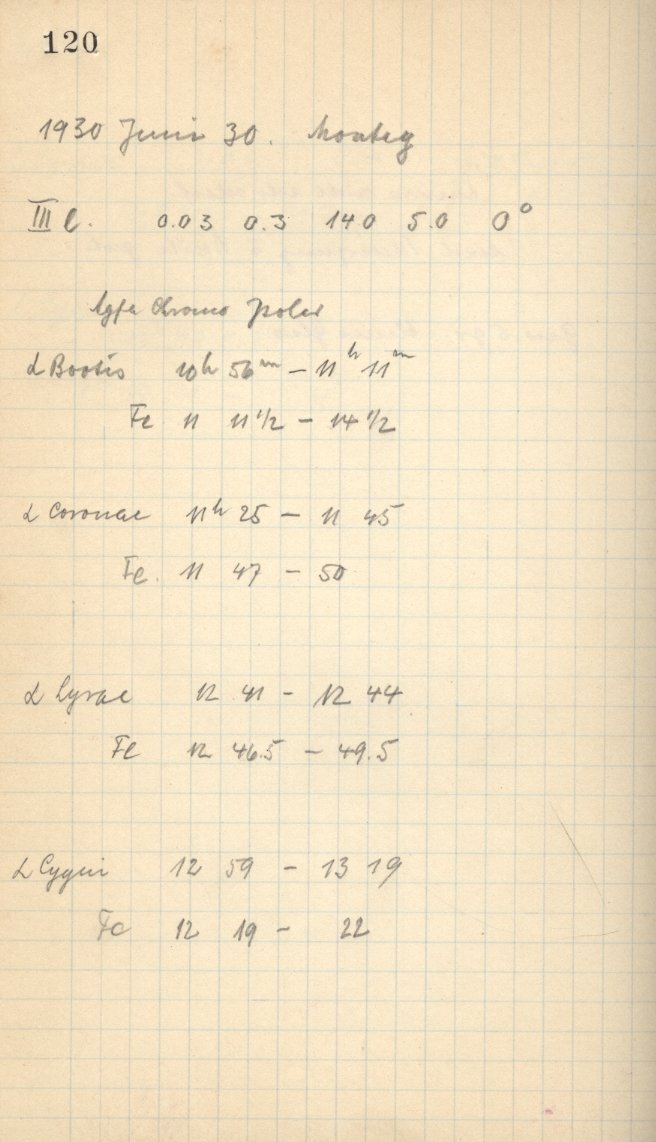 120
1930 Juni 30. Montag
III l. 0.03 0.3 140 5.0 0°
Agfa Chromo Isolar
α Bootis 10h 56m – 11h 11m
Fe 11 11 1/2 – 14 1/2
α Coronae 11h 25 – 11 45
Fe. 11 47 – 50
α Lyrae 12 41 – 12 44
Fe 12 46.5 – 49.5
α Cygni 12 59 – 13 19
Fe 12 19 – 22